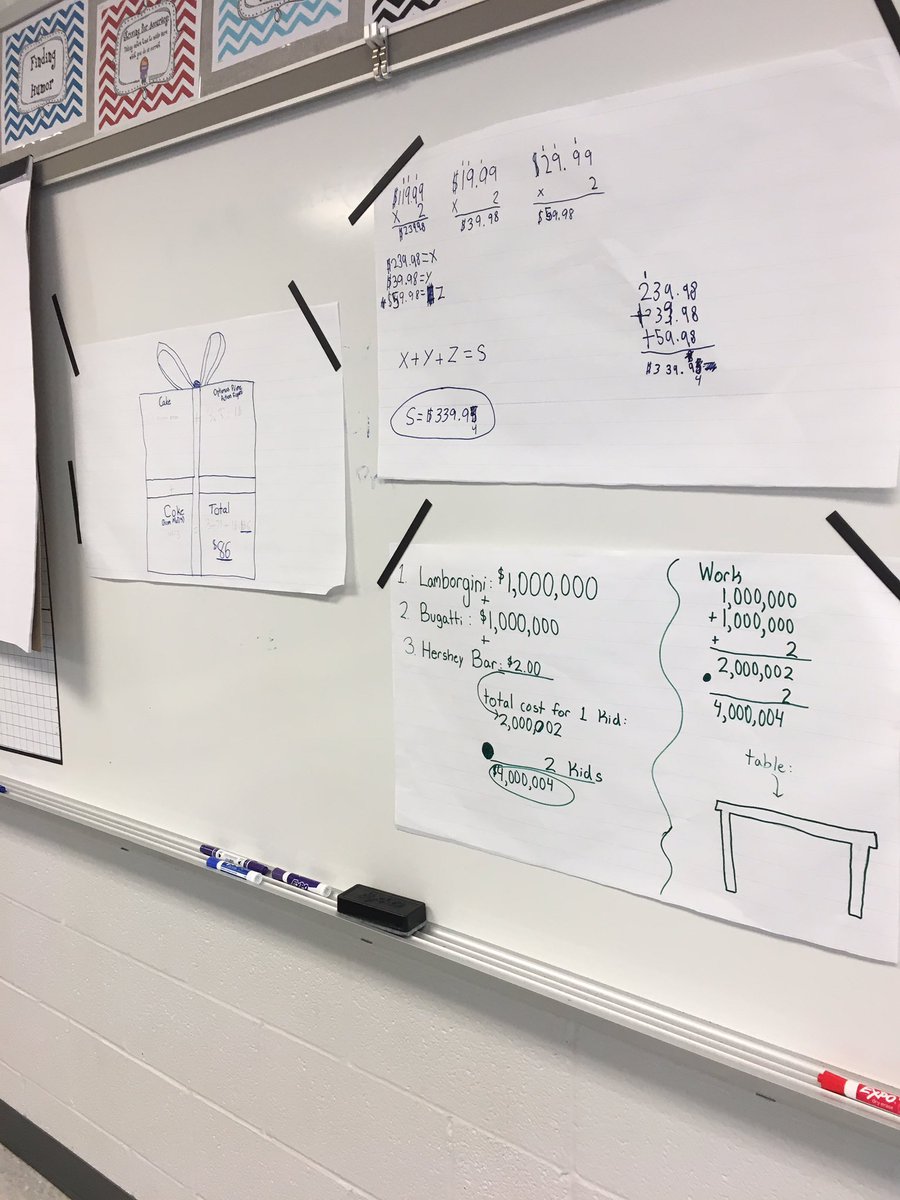 Finding
Humor
Striving for Accuracy
$119.99
x 2
$239.98
$19.99
x 2
$39.98
$29.99
x 2
$59.98
$239.98=X
$39.98=Y
$59.98=Z
X+Y+Z=S
S=$339.94
239.98
+39.98
+59.98
$339.94
Cake
Optimus Prime
Action Figure
Coke
Total
$86
1. Lamborgini: $1,000,000
+
2. Bugatti: $1,000,000
+
3. Hershey Bar: $2.00
total cost for 1 Kid:
2,000,002
2 Kids
$4,000,004
Work
1,000,000
+1,000,000
+ 2
2,000,002
• 2
4,000,004
table:
EXPO
EXPO
dry erase